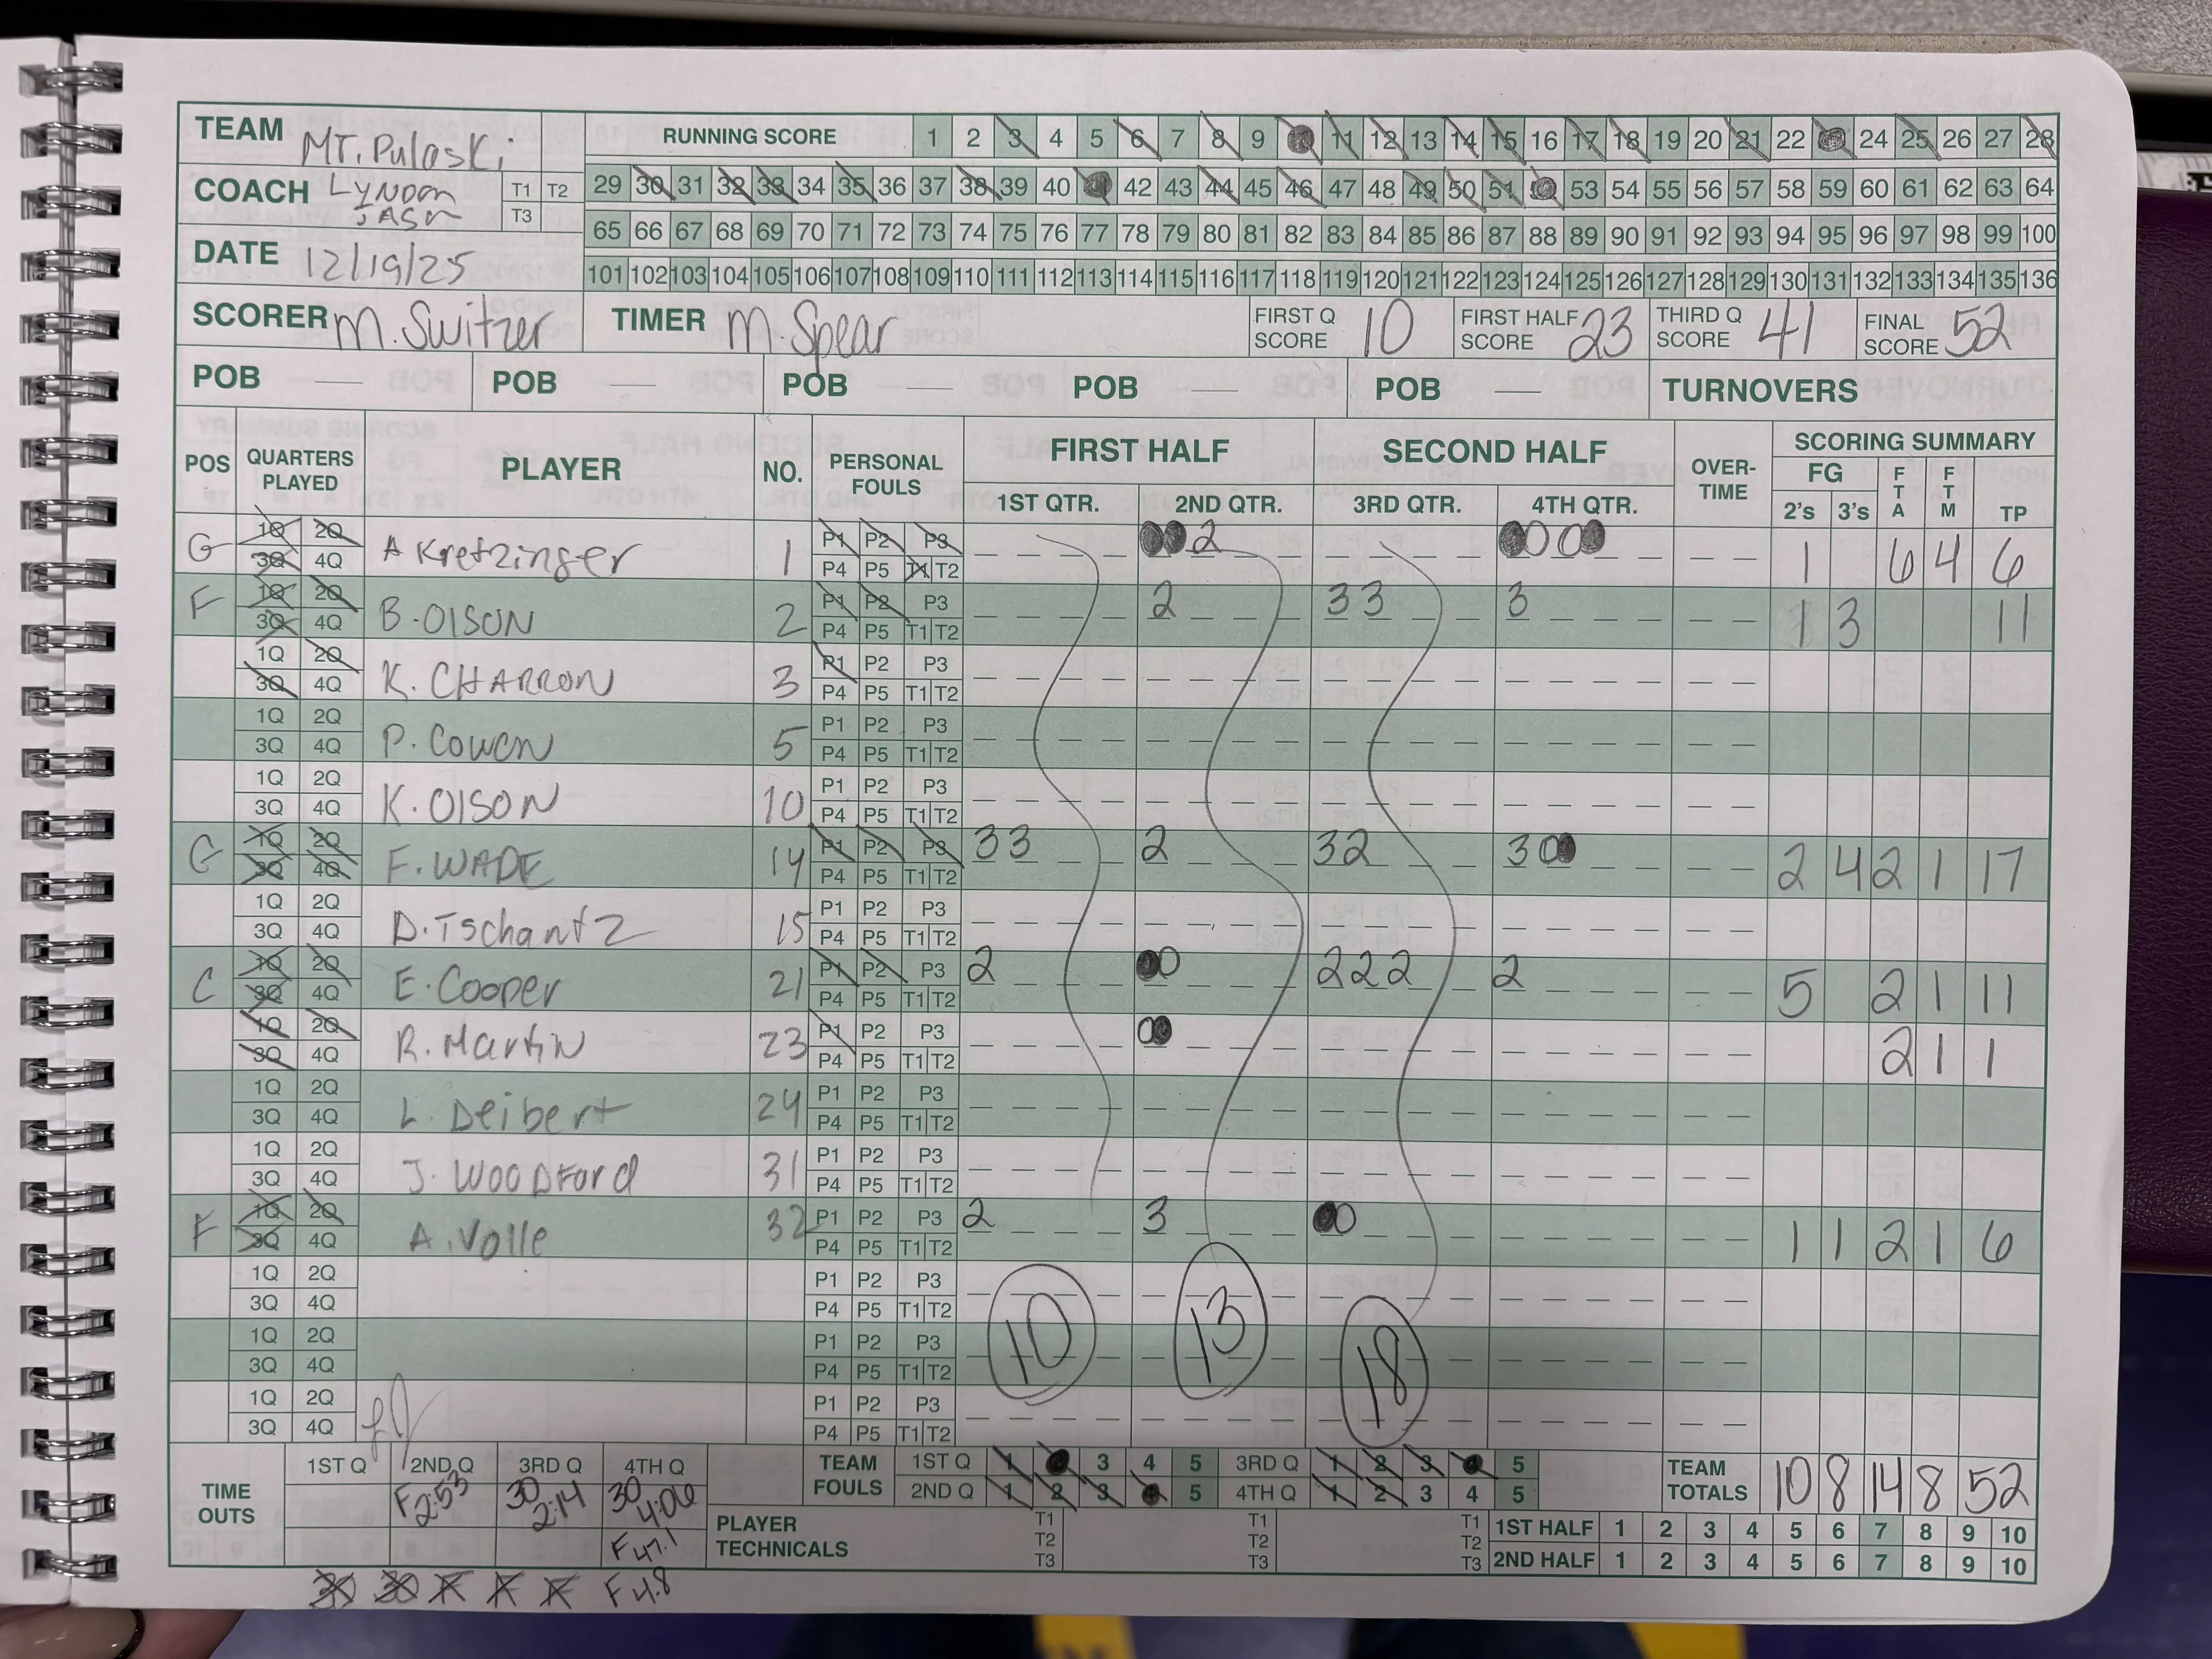 TEAM MT. Pulaski
RUNNING SCORE 1 2 3 4 5 6 7 8 9 11 12 13 14 15 16 17 18 19 20 21 22 24 25 26 27 28
COACH Lynom JASn T1 T2 T3
29 30 31 32 33 34 35 36 37 38 39 40 42 43 44 45 46 47 48 49 50 51 53 54 55 56 57 58 59 60 61 62 63 64
65 66 67 68 69 70 71 72 73 74 75 76 77 78 79 80 81 82 83 84 85 86 87 88 89 90 91 92 93 94 95 96 97 98 99 100
DATE 12/19/25
101 102 103 104 105 106 107 108 109 110 111 112 113 114 115 116 117 118 119 120 121 122 123 124 125 126 127 128 129 130 131 132 133 134 135 136
SCORER M. Switzer TIMER M. Spear FIRST Q SCORE 10 FIRST HALF SCORE 23 THIRD Q SCORE 41 FINAL SCORE 52
POB POB POB POB POB TURNOVERS
POS QUARTERS PLAYED PLAYER NO. PERSONAL FOULS FIRST HALF SECOND HALF OVER-TIME SCORING SUMMARY
1ST QTR. 2ND QTR. 3RD QTR. 4TH QTR. FG 2's 3's FTA FTM TP
G 1Q 2Q A Kretzinger 1 P1 P2 P3 2 1 6 4 6
3Q 4Q P4 P5 T1 T2
F 1Q 2Q B. OlSON 2 P1 P2 P3 2 3 3 3 1 3 11
3Q 4Q P4 P5 T1 T2
1Q 2Q K. CHARRON 3 P1 P2 P3
3Q 4Q P4 P5 T1 T2
1Q 2Q P. Cowen 5 P1 P2 P3
3Q 4Q P4 P5 T1 T2
1Q 2Q K. OlSON 10 P1 P2 P3
3Q 4Q P4 P5 T1 T2
G 1Q 2Q F. WADE 14 P1 P2 P3 3 3 2 3 2 3 0 2 4 2 1 17
3Q 4Q P4 P5 T1 T2
1Q 2Q D. Tschantz 15 P1 P2 P3
3Q 4Q P4 P5 T1 T2
C 1Q 2Q E. Cooper 21 P1 P2 P3 2 0 2 2 2 2 5 2 1 11
3Q 4Q P4 P5 T1 T2
1Q 2Q R. Martin 23 P1 P2 P3 0 2 1 1
3Q 4Q P4 P5 T1 T2
1Q 2Q L. Deibert 24 P1 P2 P3
3Q 4Q P4 P5 T1 T2
1Q 2Q J. WOODFord 31 P1 P2 P3
3Q 4Q P4 P5 T1 T2
F 1Q 2Q A. Volle 32 P1 P2 P3 2 3 0 1 1 2 1 6
3Q 4Q P4 P5 T1 T2
1Q 2Q P1 P2 P3
3Q 4Q P4 P5 T1 T2
1Q 2Q P1 P2 P3 10 13 18
3Q 4Q P4 P5 T1 T2
1Q 2Q P1 P2 P3
3Q 4Q P4 P5 T1 T2
TIME OUTS 1ST Q 2ND Q 3RD Q 4TH Q
F 2:53 30 2:14 30 4:06
F 47.1
30 30 F F F F 4.8
TEAM FOULS 1ST Q 1 3 4 5 3RD Q 1 2 3 4 5
2ND Q 1 2 3 4 5 4TH Q 1 2 3 4 5
TEAM TOTALS 10 8 14 8 52
PLAYER TECHNICALS T1 T2 T3 T1 T2 T3 T1 T2 T3
1ST HALF 1 2 3 4 5 6 7 8 9 10
2ND HALF 1 2 3 4 5 6 7 8 9 10